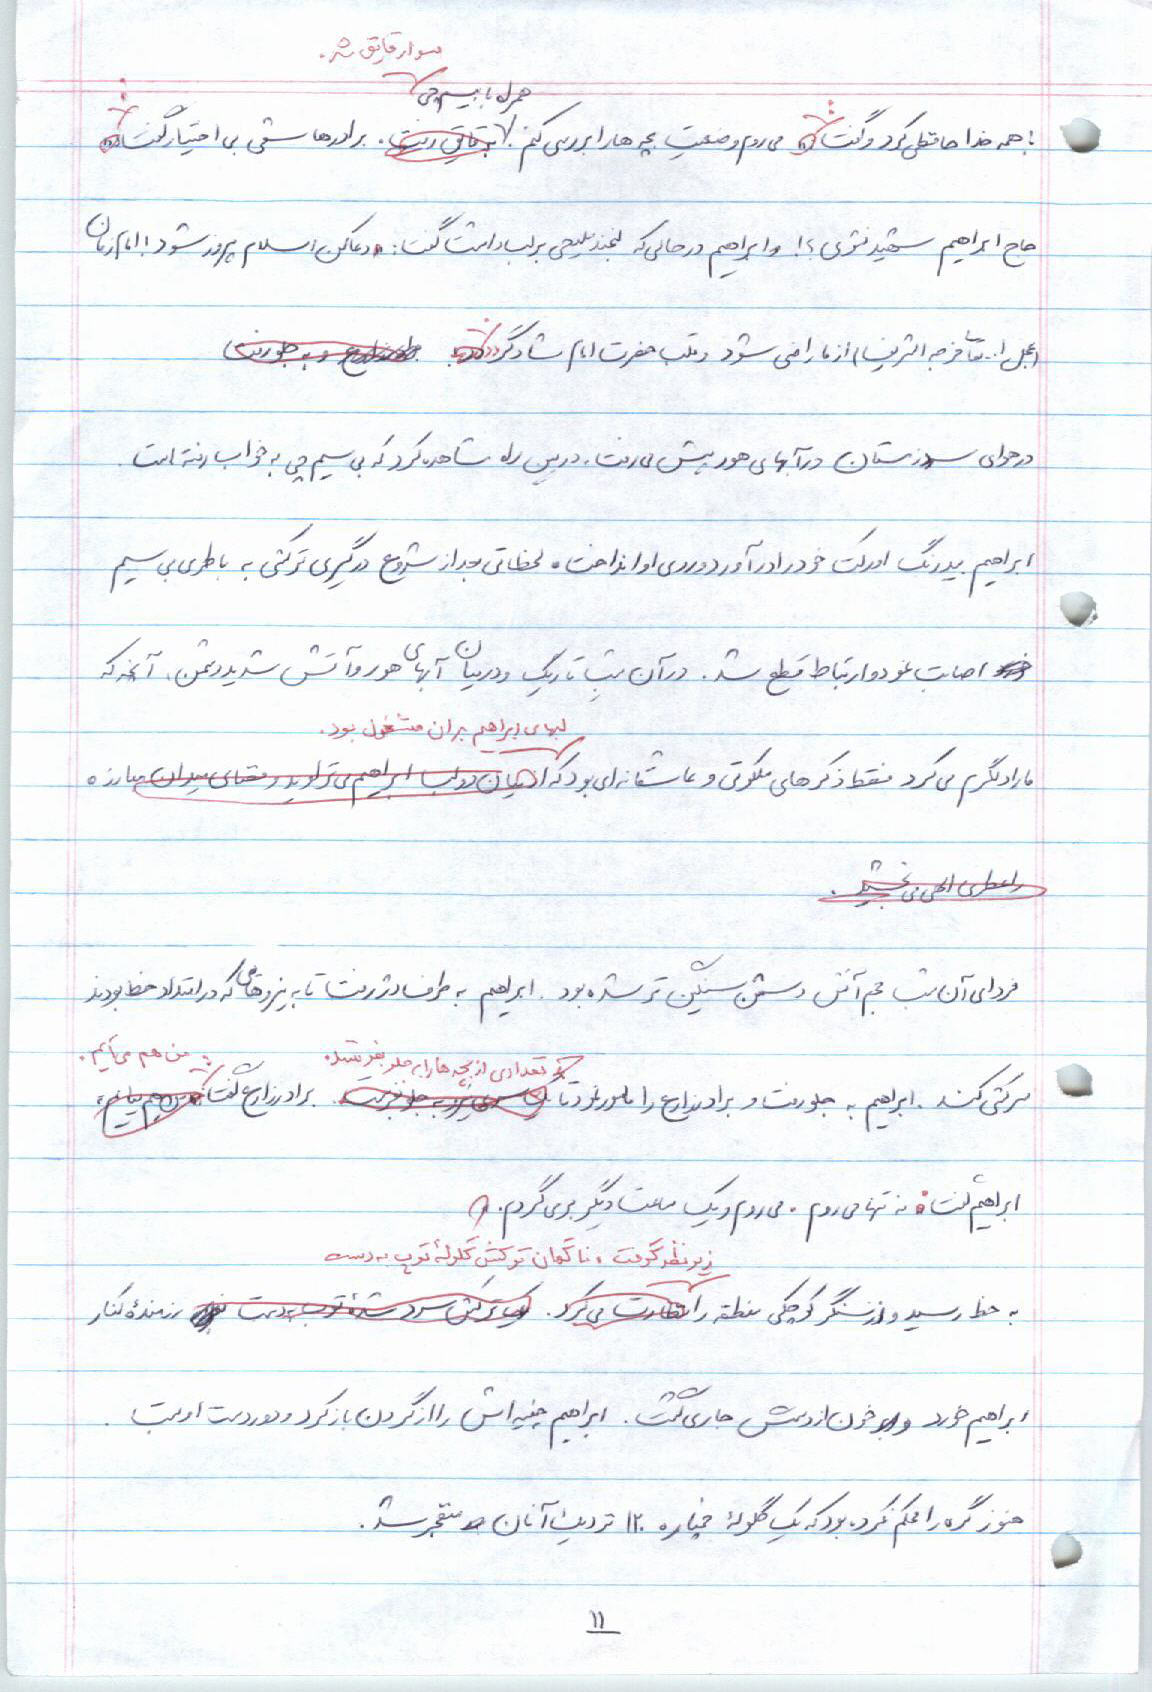 سوار قایق شد.
همراه با بیسیم‌چی
با همه خداحافظی کرد و گفت: می‌روم وضعیت بچه‌ها را بررسی کنم. با قایق رفت. برادر هاشمی بی اختیار گفت:
حاج ابراهیم شهید نشوی؟! و ابراهیم در حالی که لبخند ملیحی بر لب داشت گفت: دعا کن اسلام پیروز شود! امام زمان
(عجل ا... تعالی فرجه الشریف) از ما راضی شود و قلب حضرت امام شاد گردد و به جلو رفت
در هوای سرد زمستان در آبهای هور پیش می‌رفت. در بین راه مشاهده کرد که بی سیم چی به خواب رفته است.
ابراهیم بیدرنگ اورکت خود را درآورد و روی او انداخت. لحظاتی بعد از شروع درگیری ترکشی به باطری بی سیم
اصابت نمود و ارتباط قطع شد. در آن شب تاریک و در میان آبهای هور و آتش شدید دشمن، آنچه که
لبهای ابراهیم بدان مشغول بود.
ما را دلگرم می‌کرد فقط ذکرهای ملکوتی و عاشقانه‌ای بود که از میان دو لب ابراهیم می‌تراوید و فضای میدان مبارزه
را عطری الهی می‌بخشید.
فردای آن شب حجم آتش دشمن سنگین تر شده بود. ابراهیم به طرف دژ رفت تا به نیروهایی که در امتداد خط بودند
که تعدادی از بچه ها را به جلو بفرستد. من هم می‌آیم.
سرکشی کند. ابراهیم به جلو رفت و برادر زارع را مامور نمود تا یک سری نیرو به جلو بفرستد. برادر زارع گفت: من هم بیایم؟
ابراهیم گفت: نه تنها می‌روم. می‌روم و یک ساعت دیگر برمی‌گردم.
زیر نظر گرفت. ناگهان ترکش گلولهٔ توپ به دست
به خط رسید و از سنگر کوچکی منطقه را نظارت می‌کرد. یک ترکش سرد شدهٔ توپ به دست رزمندهٔ کنار
ابراهیم خورد و خون از دستش جاری گشت. ابراهیم چفیه‌اش را از گردن باز کرد و دور دست او بست.
هنوز گره را محکم نکرده بود که یک گلولهٔ خمپاره ۱۲۰ نزدیک آنان منفجر شد.
۱۱